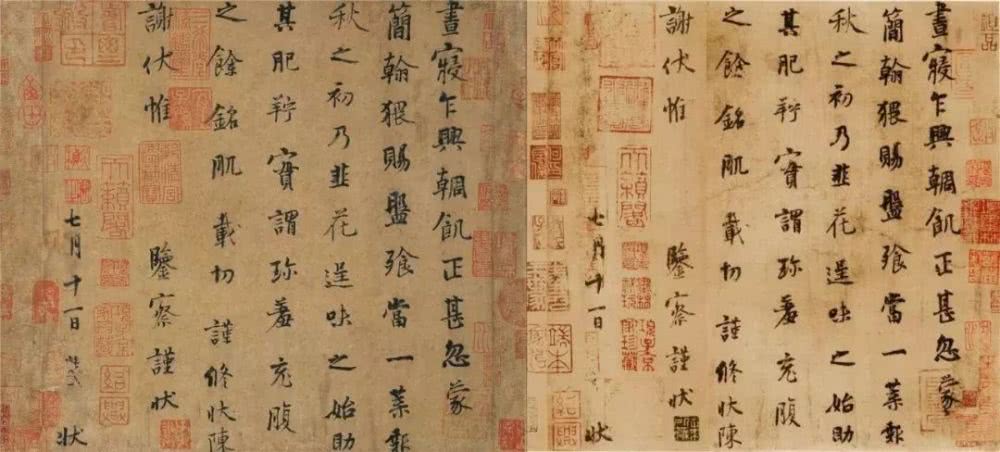 晝寢乍興輖飢正甚忽蒙
簡翰猥賜盤飧當一葉報
秋之初乃韭花逞味之始助
其肥羜實謂珍羞充腹
之餘銘肌載切謹修狀陳
謝伏惟 鑒察謹狀
七月十一日 狀
天籟閣
晝寢乍興輖飢正甚忽蒙
簡翰猥賜盤飧當一葉報
秋之初乃韭花逞味之始助
其肥羜實謂珍羞充腹
之餘銘肌載切謹修狀陳
謝伏惟 鑒察謹狀
七月十一日 狀
天籟閣
項子京家珍藏